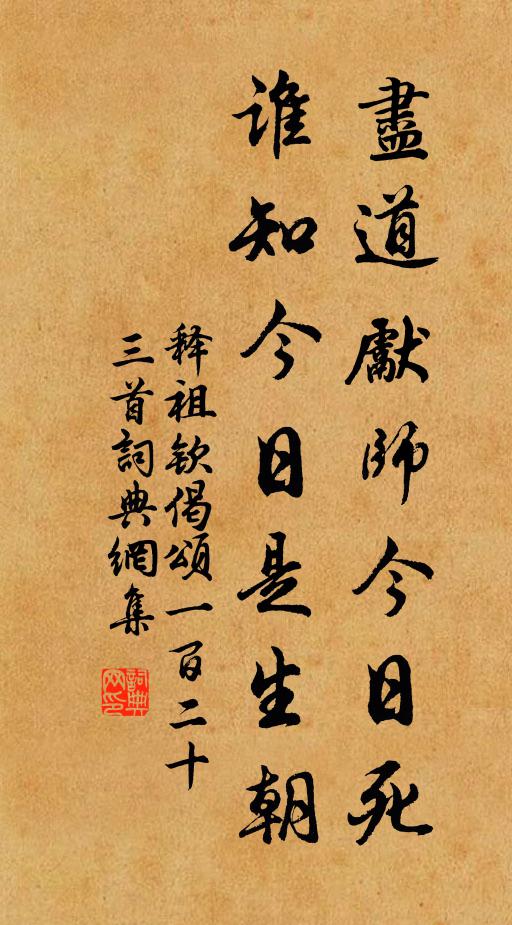 盡道獻師今日死
誰知今日是生朝
释祖欽偈頌一百二十
三首詞典網集
詞典
网印